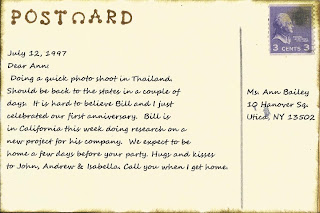 POSTCARD
3 CENTS 3
July 12, 1997
Dear Ann:
Doing a quick photo shoot in Thailand.
Should be back to the states in a couple of
days. It is hard to believe Bill and I just
celebrated our first anniversary. Bill is
in California this week doing research on a
new project for his company. We expect to be
home a few days before your party. Hugs and kisses
to John, Andrew & Isabella. Call you when I get home.
Ms. Ann Bailey
10 Hanover Sq.
Utica, NY 13502